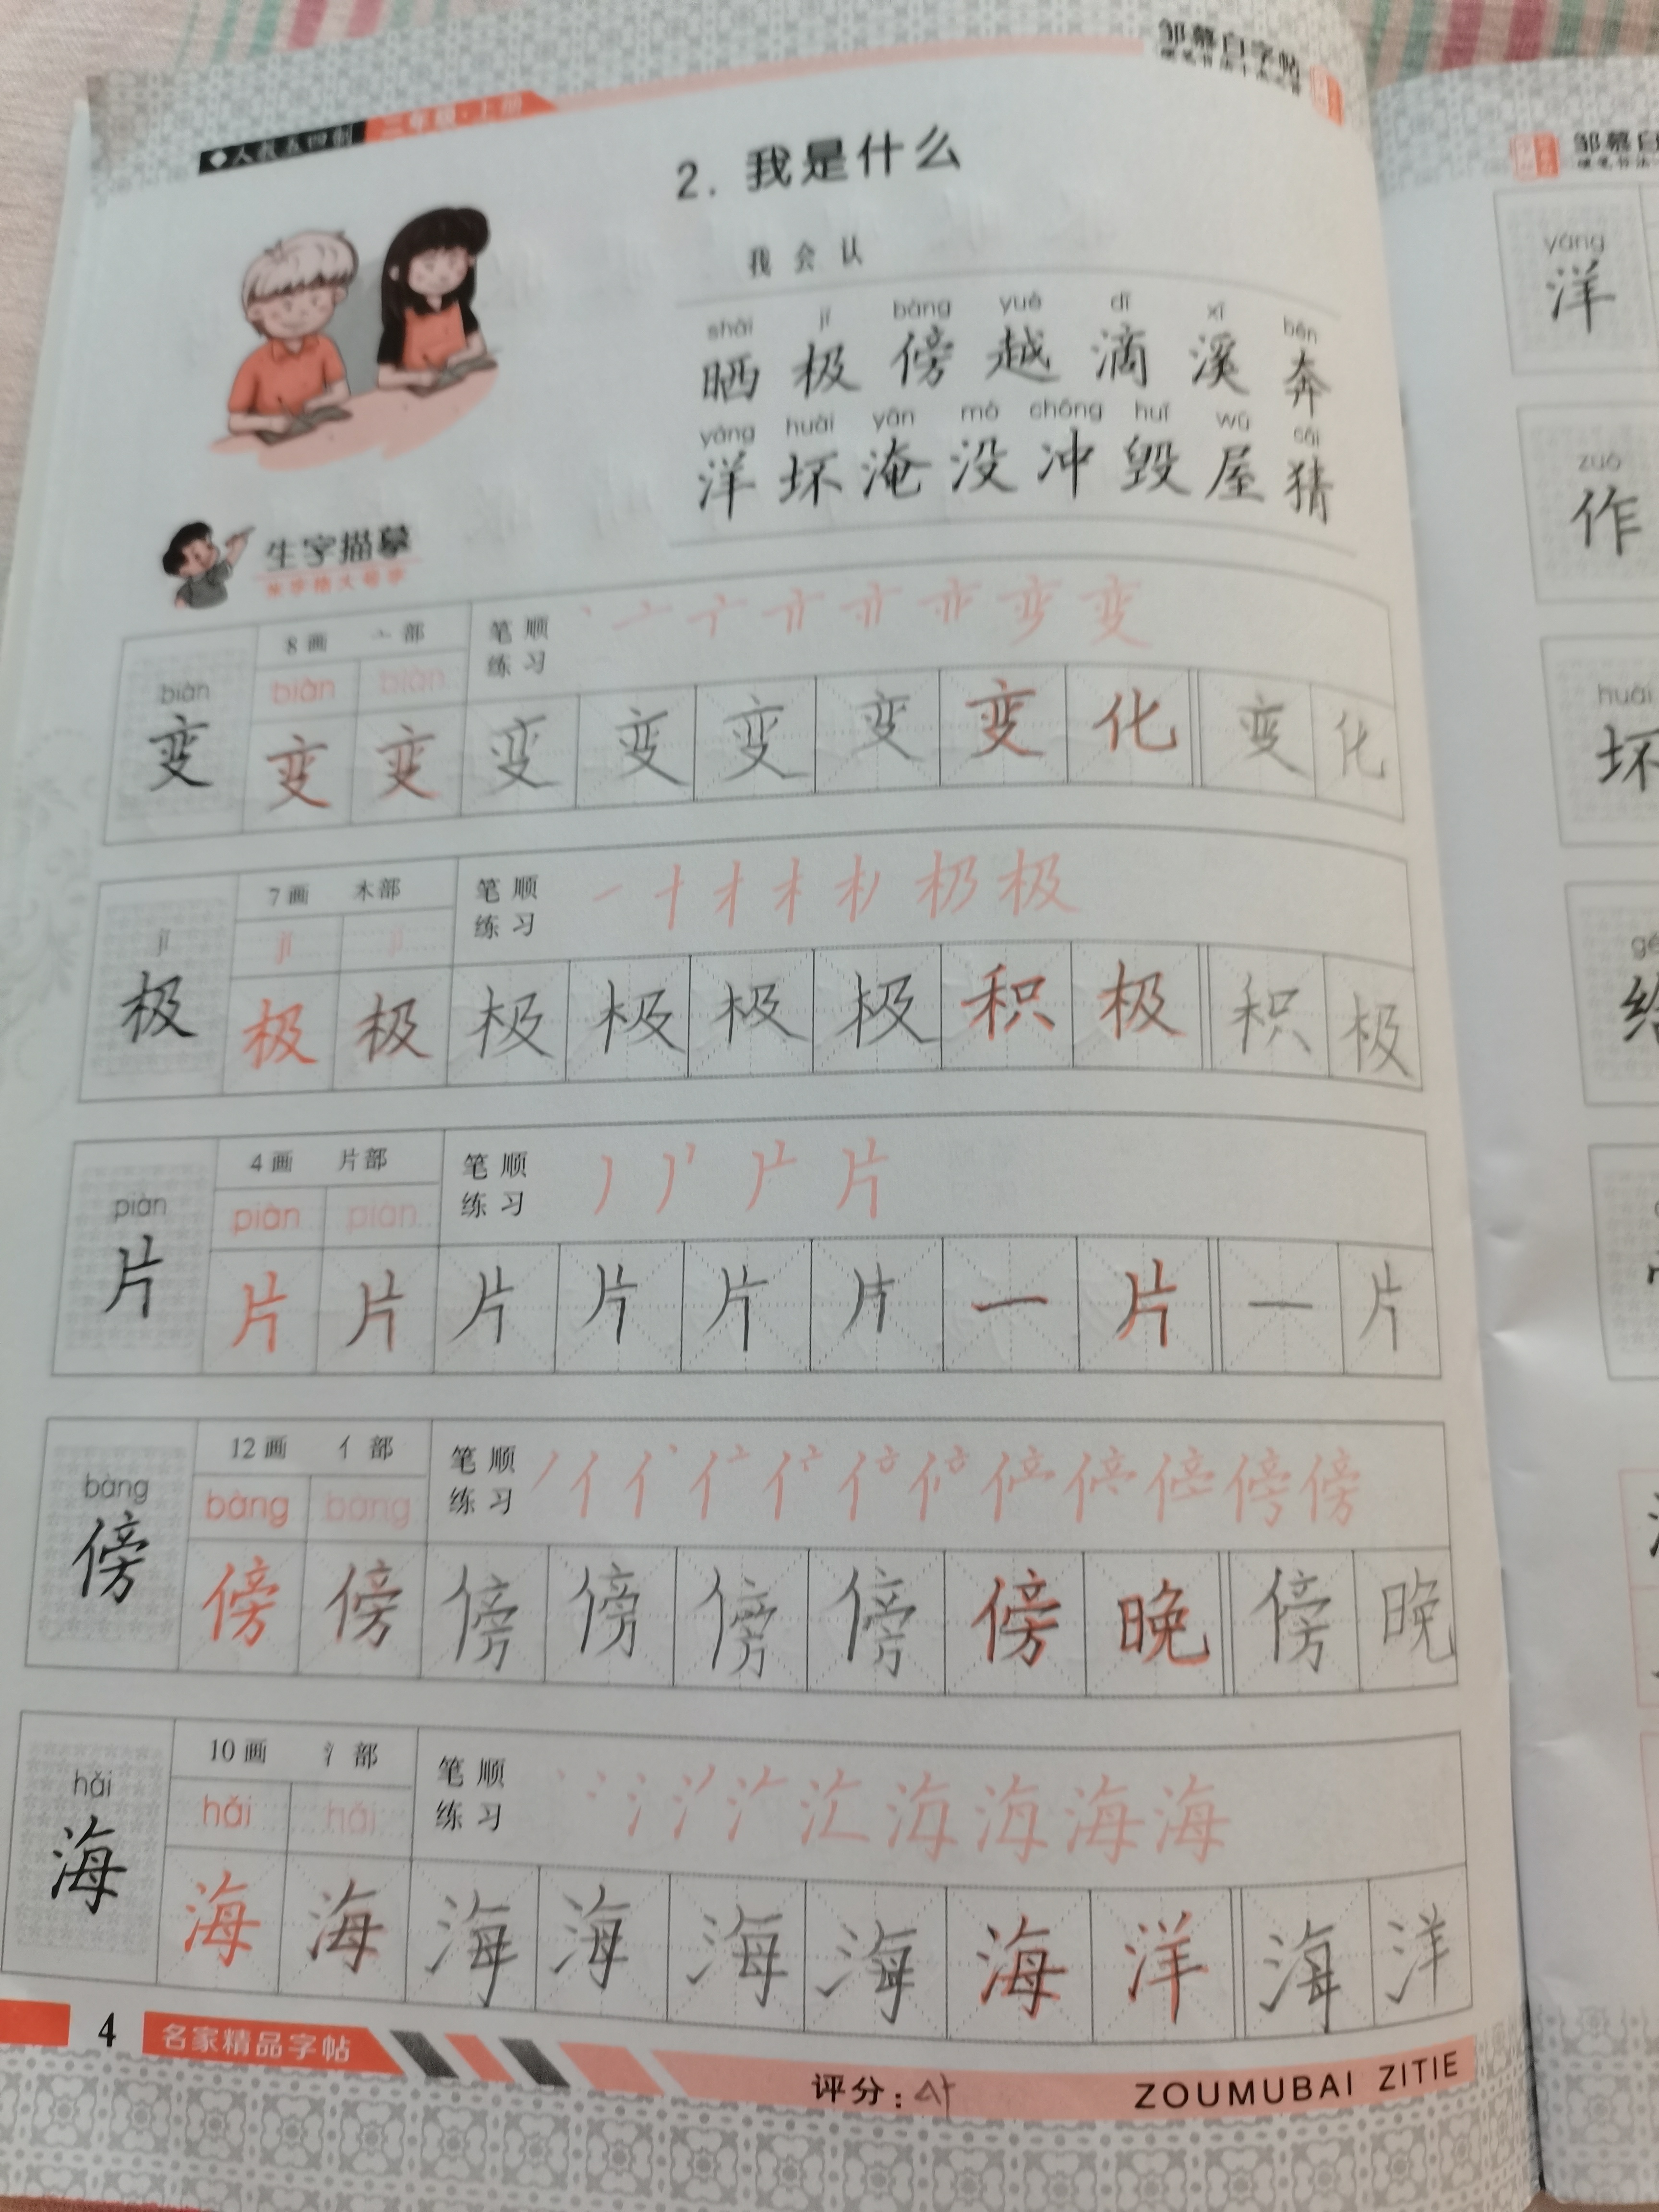 人教五四制 二年级·上册
邹慕白字帖
2. 我是什么
我会认
shài jí bàng yuè dī xī bēn
晒 极 傍 越 滴 溪 奔
yáng huài yān mò chōng huǐ wū cāi
洋 坏 淹 没 冲 毁 屋 猜
生字描摹
8画 亠部 笔顺
biàn biàn biàn 练习
变 变 变 变 变 变 变 变 化 变 化
7画 木部 笔顺
jí jí jí 练习
极 极 极 极 极 极 极 积 极 积 极
4画 片部 笔顺
piàn piàn piàn 练习
片 片 片 片 片 片 片 一 片 一 片
12画 亻部 笔顺
bàng bàng bàng 练习
傍 傍 傍 傍 傍 傍 傍 傍 晚 傍 晚
10画 氵部 笔顺
hǎi hǎi hǎi 练习
海 海 海 海 海 海 海 海 洋 海 洋
4 名家精品字帖
评分: ZOUMUBAI ZITIE
邹慕白
yáng
洋
zuò
作
huài
坏
给